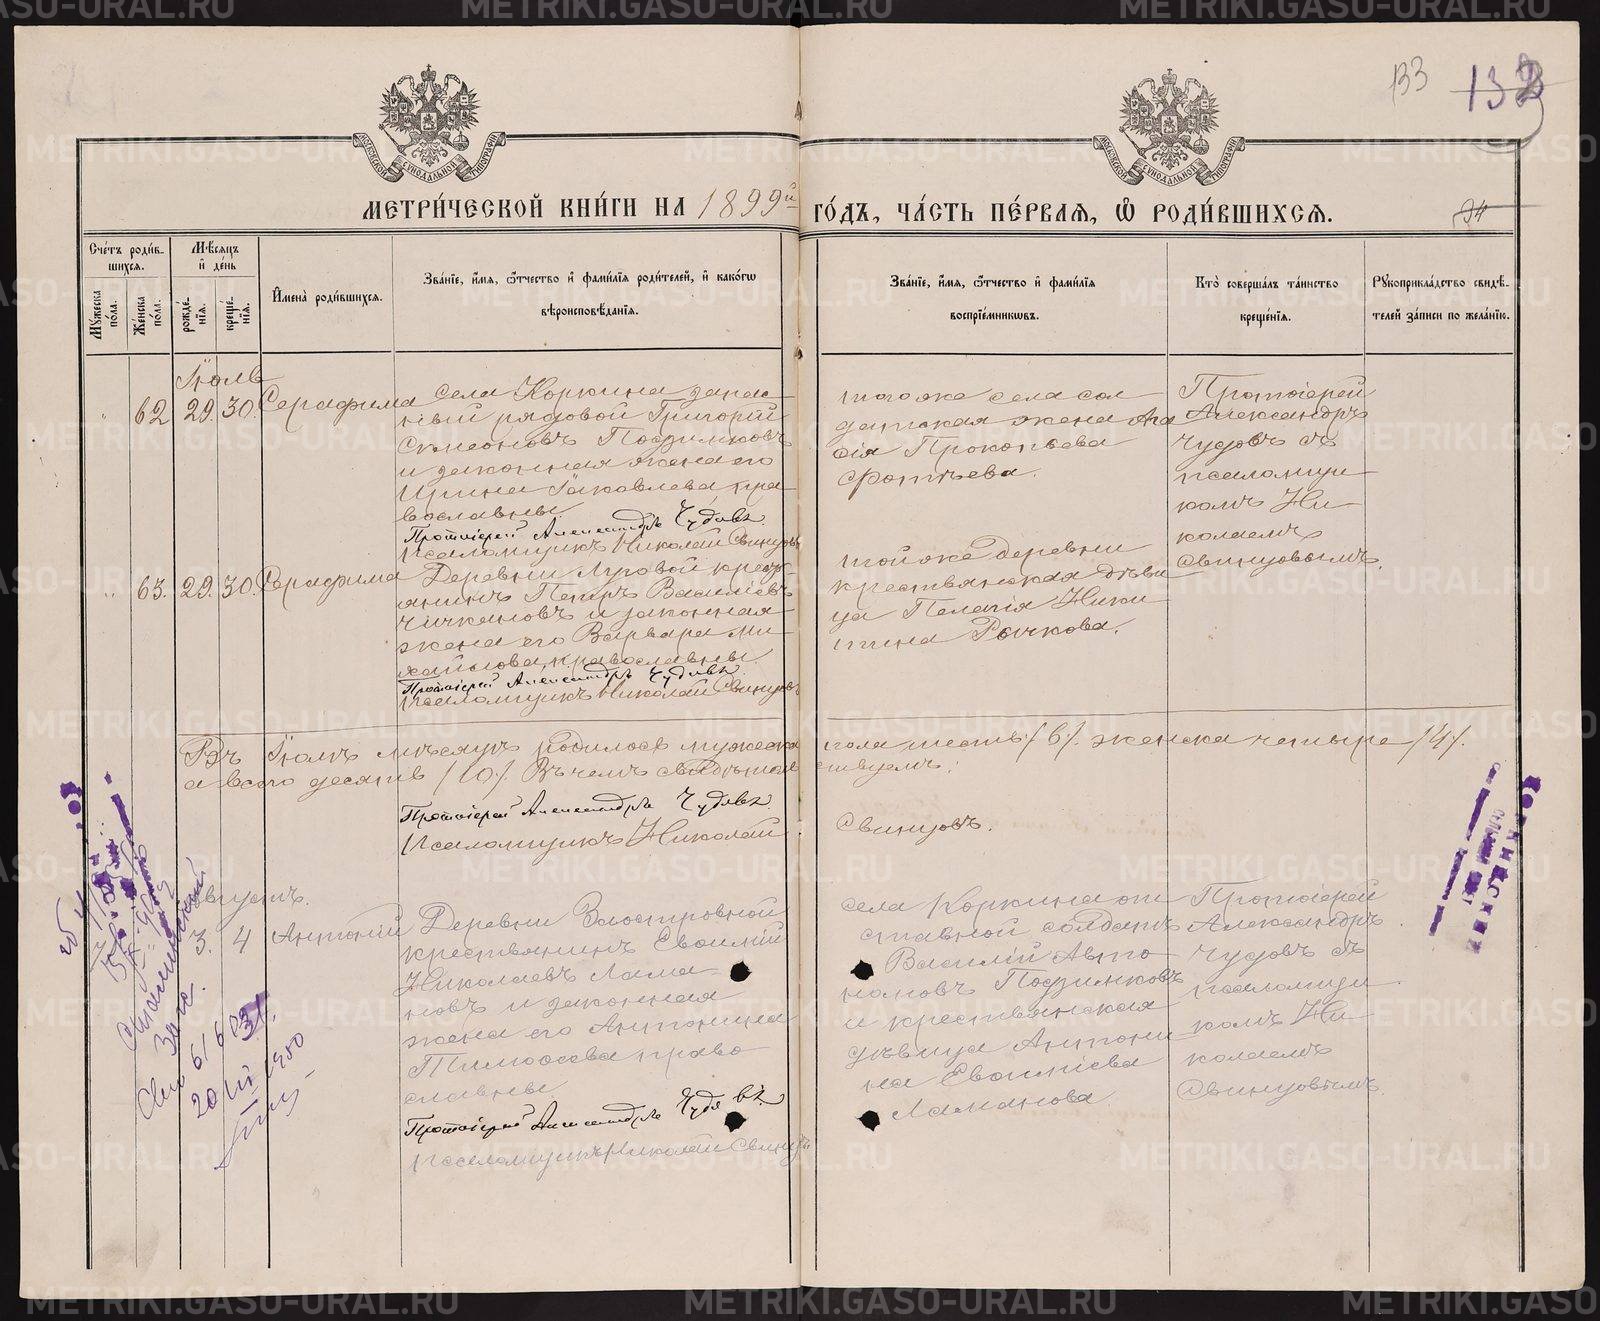 133 132
МОСКОВСКОЙ СУНОДАЛЬНОЙ ТИПОГРАФІИ
МОСКОВСКОЙ СУНОДАЛЬНОЙ ТИПОГРАФІИ
МЕТРИ́ЧЕСКОЙ КНИ́ГИ НА 1899й ГО́ДЪ, ЧА́СТЬ ПЕ́РВАЯ, Ѽ РОДИ́ВШИХСЯ.
Сче́тъ роди́в-
шихся.
Мѣ́сяцъ
и҆ де́нь
Му́жеска по́ла.
Же́нска по́ла.
рожде́нїя.
креще́нїя.
И҆мена̀ роди́вшихся.
Зва́нїе, и҆́мя, ѻ҆́тчество и҆ фами́лїя роди́телей, и҆ како́гѡ
вѣроисповѣ́данїя.
Зва́нїе, и҆́мя, ѻ҆́тчество и҆ фами́лїя
воспрїе́мникѡвъ.
Кто̀ соверша́лъ та́инство
креще́нїя.
Рукоприкла́дство свидѣ́-
телей за́писи по жела́нїю.
Іюль
62 29. 30. Серафима
села Коркина запас-
ный рядовой Григорій
Симеоновъ Подзилковъ
и законная жена его
Ирина Іаковлева, пра-
вославны.
Протоіерей Александръ Чудовъ
Псаломщикъ Николай Свинцовъ
того же села сол-
датская жена Ага-
ѳія Прокопьева
Фотѣева.
Протоіерей
Александръ
Чудовъ съ
псаломщи-
комъ Ни-
колаемъ
Свинцовымъ.
63. 29. 30. Серафима
Деревни Луговой кресть-
янинъ Петръ Василіевъ
Чичкановъ и законная
жена его Варвара Ми-
хайлова, православны.
Протоіерей Александръ Чудовъ
Псаломщикъ Николай Свинцовъ
той же деревни
крестьянская дѣви-
ца Пелагія Ники-
тина Рычкова.
Въ Іюлѣ мѣсяцѣ родилось мужеска пола шесть /6/. женска четыре /4/.
а всего десять /10/. Въ чемъ свидѣтельствуемъ:
Протоіерей Александръ Чудовъ
Псаломщикъ Николай Свинцовъ.
Августъ.
3. 4 Антоній
Деревни Заостровной
крестьянинъ Евѳимій
Николаевъ Лама-
новъ и законная
жена его Антонина
Тимоѳеева право-
славны.
Протоіерей Александръ Чудовъ
Псаломщикъ Николай Свинцовъ
села Коркина от-
ставной солдатъ
Василій Авто-
номовъ Подзилковъ
и крестьянская
дѣвица Антони-
на Евѳимієва
Ламанова.
Протоіерей
Александръ
Чудовъ съ
псаломщи-
комъ Ни-
колаемъ
Свинцовымъ.
20 III 1950